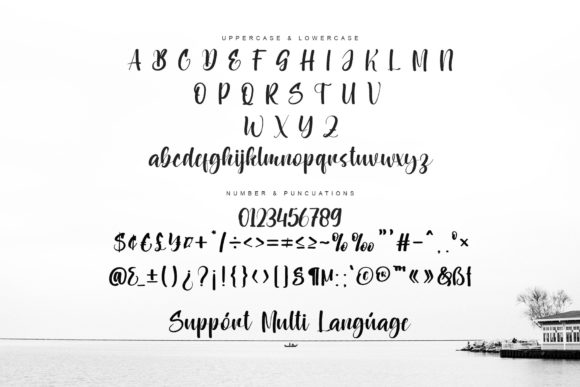 UPPERCASE & LOWERCASE
A B C D E F G H I J K L M N
O P Q R S T U V
W X Y Z
abcdefghijklmnopqrstuvwxyz
NUMBER & PUNCUATIONS
0123456789
$¢€£¥¤+*/÷<>=≠≤≥~%‰"'#-^.,º×
@&_±()¿?¡!{}‹›[]§¶µ:;'©®™«»&ßf
Suppórt Multi Langúage